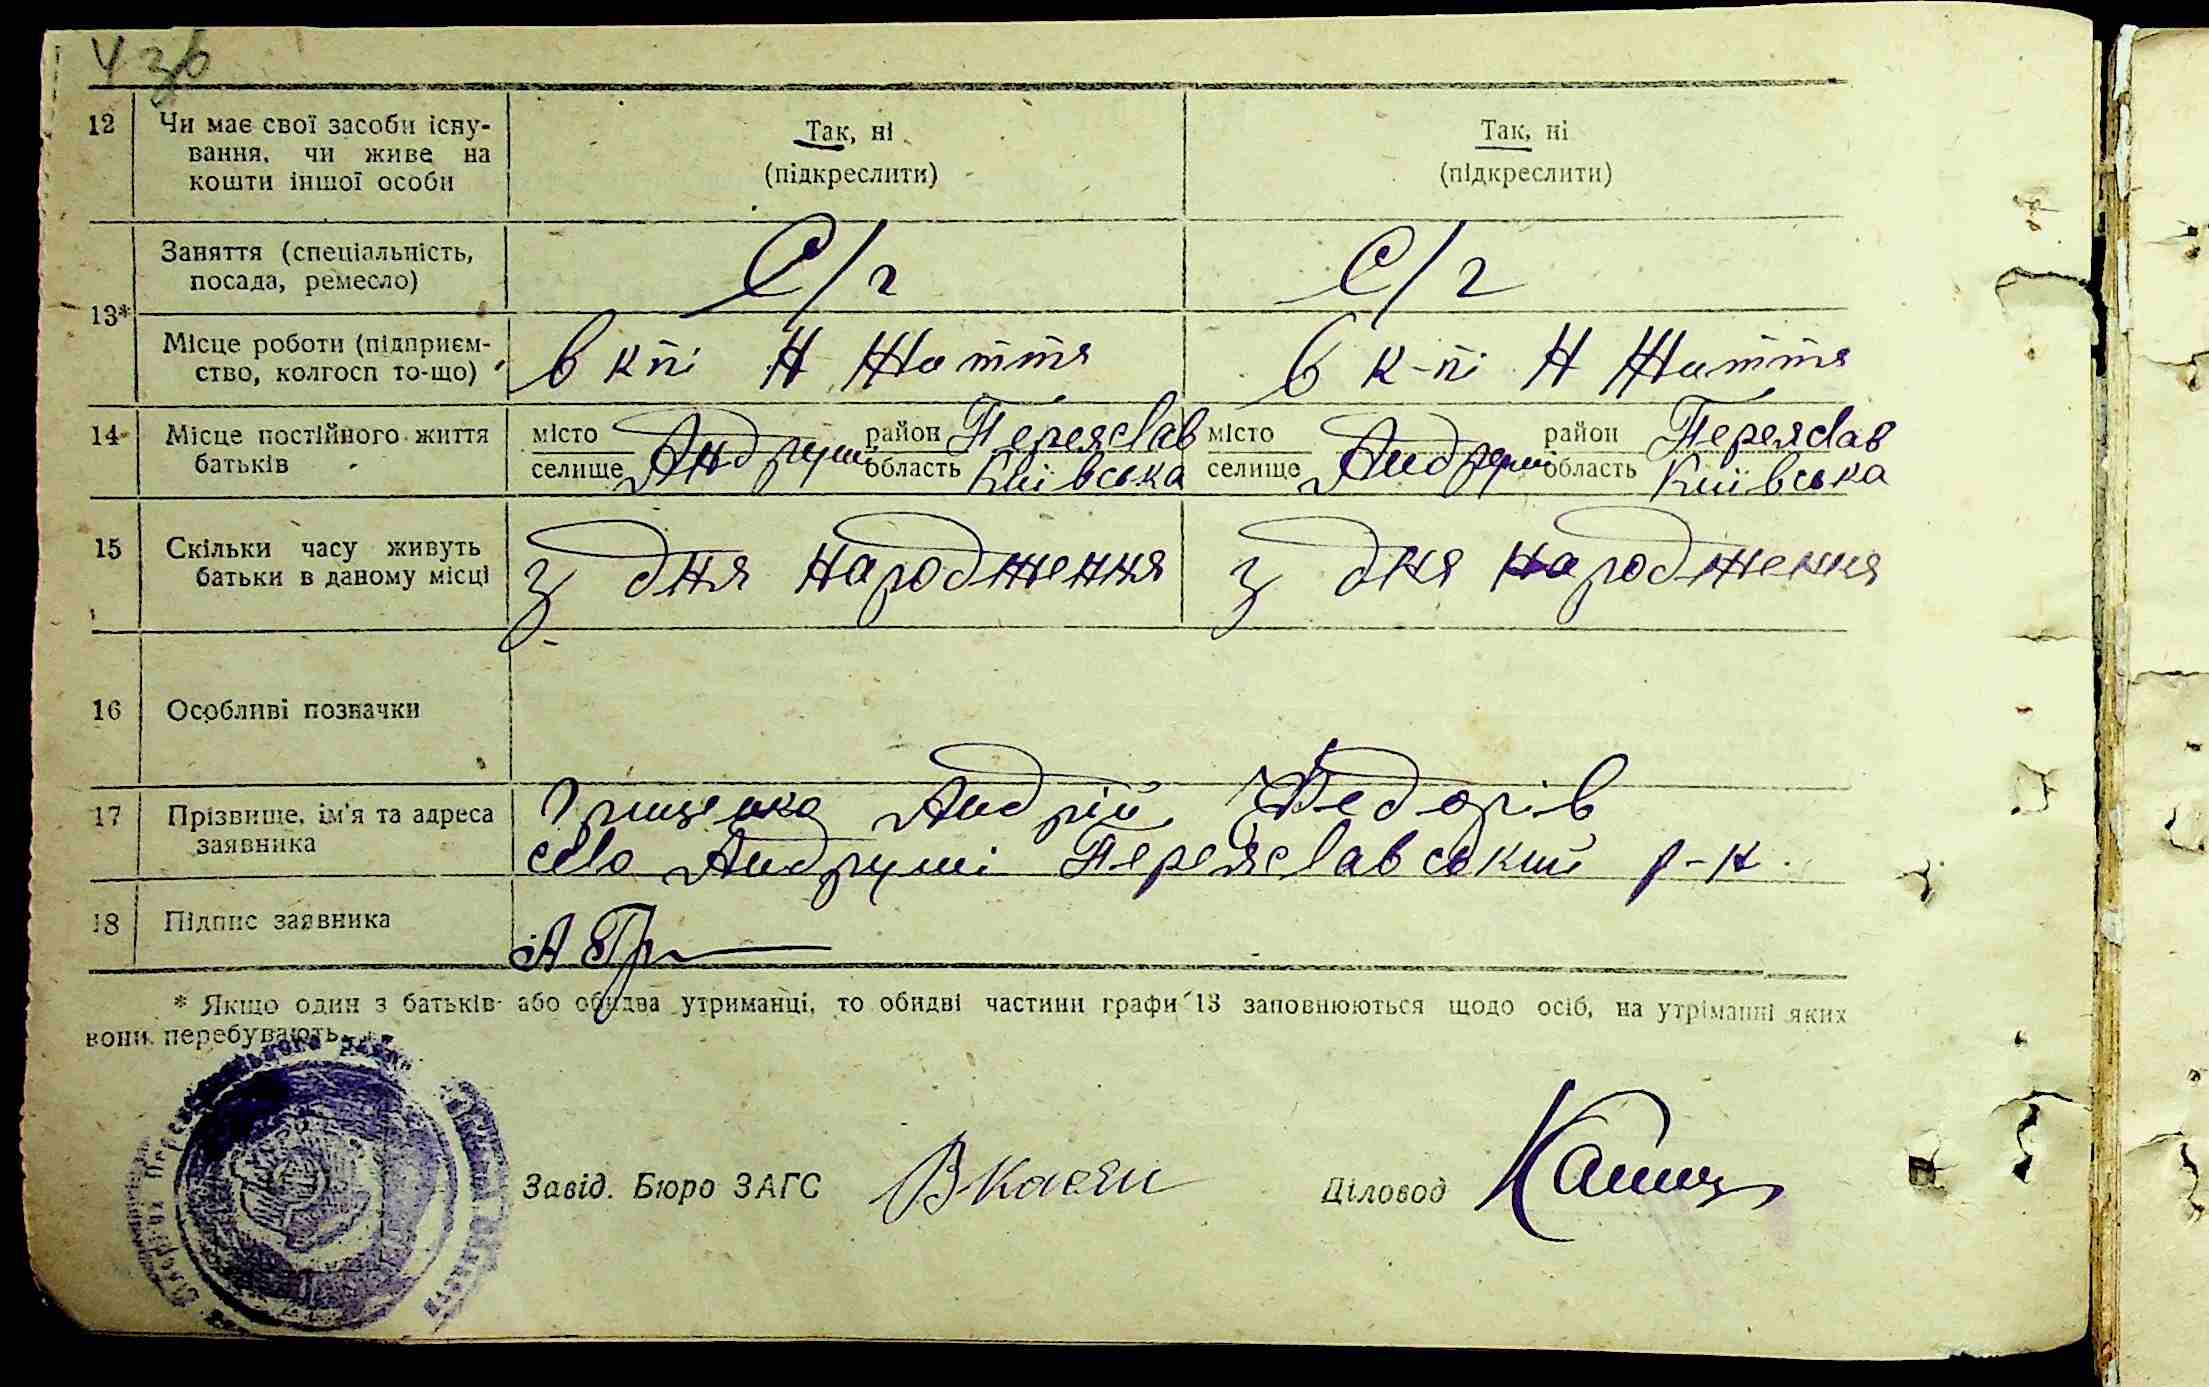 436
12 Чи має свої засоби існу-
вання, чи живе на
кошти іншої особи
Так, ні
(підкреслити)
Так, ні
(підкреслити)
13*
Заняття (спеціальність,
посада, ремесло)
С/г
С/г
Місце роботи (підприєм-
ство, колгосп то-що)
в кпі Н Життя
в к-пі Н Життя
14 Місце постійного життя
батьків
місто
селище Андруші
район Переяслав
область Київська
місто
селище Андруші
район Переяслав
область Київська
15 Скільки часу живуть
батьки в даному місці
з дня народження
з дня народження
16 Особливі позначки
17 Прізвище, ім'я та адреса
заявника
Грищенко Андрій Федорів
село Андруші Переяславський р-н
18 Підпис заявника
А Гр
* Якщо один з батьків або обидва утриманці, то обидві частини графи 13 заповнюються щодо осіб, на утріманні яких
вони перебувають.
Завід. Бюро ЗАГС
Діловод